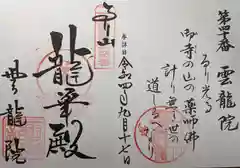 第四十番 雲龍院
るり光る
御寺の山の薬師佛
計り無き世の
道しるべ
奉拝
令和四年九月十七日
龍華殿
雲龍院